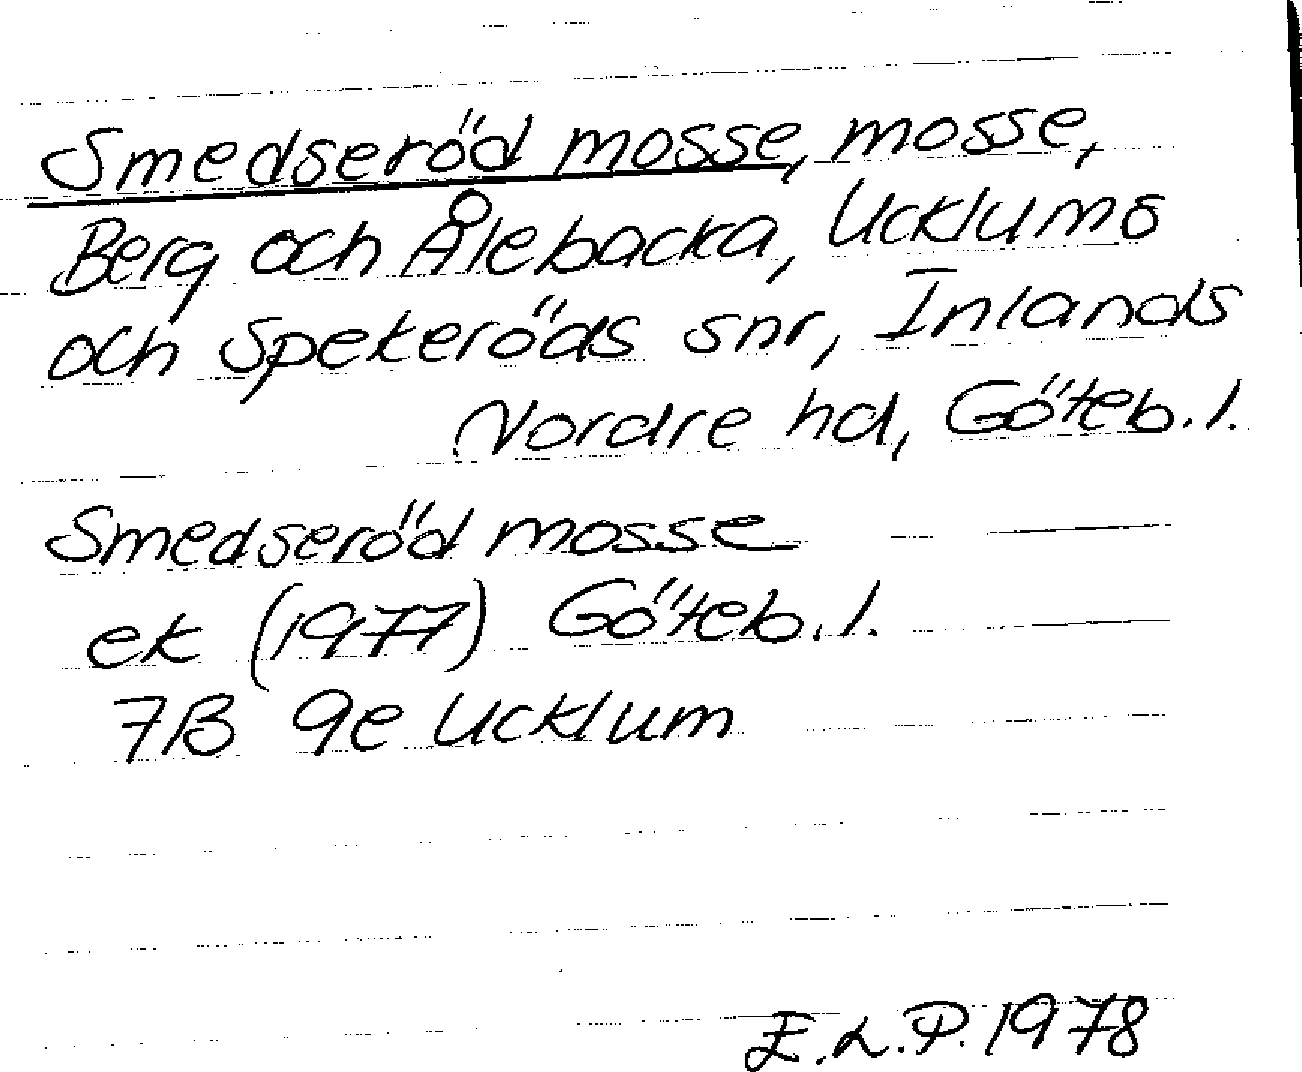 Smedseröd mosse, mosse,
Berg och Ålebacka, Ucklums
och Spekeröds snr, Inlands
Nordre hd, Göteb.l.
Smedseröd mosse
ek (1977) Göteb.l.
7B 9e Ucklum
E.L.P. 1978